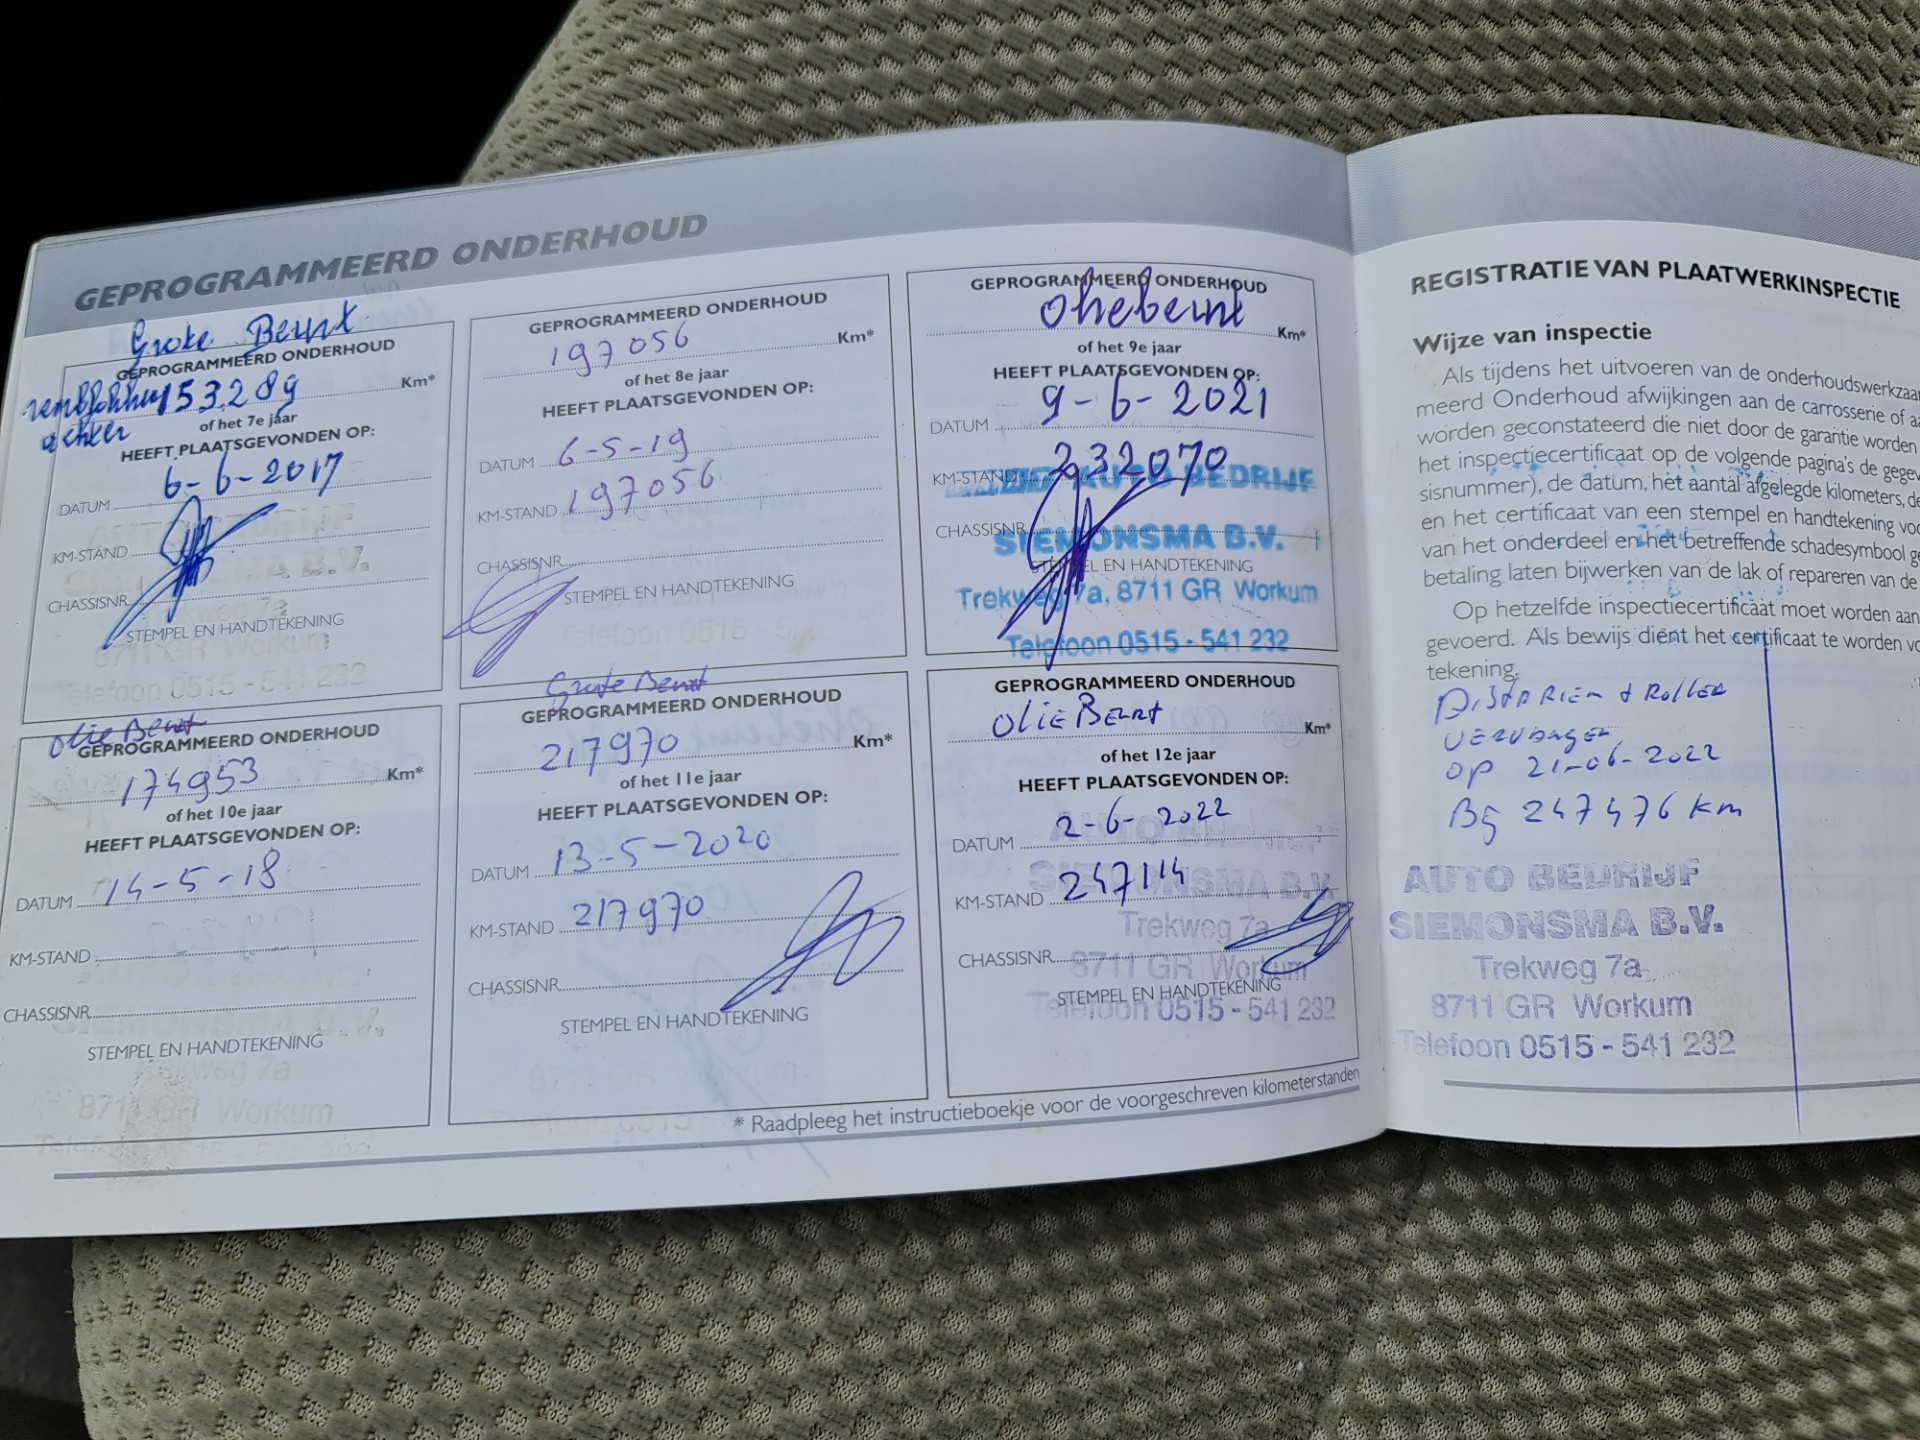 GEPROGRAMMEERD ONDERHOUD
Grote Beurt
GEPROGRAMMEERD ONDERHOUD
remblokken 153289 Km*
achter
of het 7e jaar
HEEFT PLAATSGEVONDEN OP:
DATUM 6-6-2017
KM-STAND
CHASSISNR
STEMPEL EN HANDTEKENING
8711 GR Workum
Telefoon 0515 - 541 232
GEPROGRAMMEERD ONDERHOUD
197056 Km*
of het 8e jaar
HEEFT PLAATSGEVONDEN OP:
DATUM 6-5-19
KM-STAND 197056
CHASSISNR
STEMPEL EN HANDTEKENING
Telefoon 0515
GEPROGRAMMEERD ONDERHOUD
oliebeurt Km*
of het 9e jaar
HEEFT PLAATSGEVONDEN OP:
DATUM 9-6-2021
KM-STAND 232070
AUTO BEDRIJF
CHASSISNR
SIEMONSMA B.V.
STEMPEL EN HANDTEKENING
Trekweg 7a, 8711 GR Workum
Telefoon 0515 - 541 232
olie Beurt
GEPROGRAMMEERD ONDERHOUD
174953 Km*
of het 10e jaar
HEEFT PLAATSGEVONDEN OP:
DATUM 14-5-18
KM-STAND
CHASSISNR
SIEMONSMA B.V.
STEMPEL EN HANDTEKENING
Trekweg 7a
8711 GR Workum
Grote Beurt
GEPROGRAMMEERD ONDERHOUD
217970 Km*
of het 11e jaar
HEEFT PLAATSGEVONDEN OP:
DATUM 13-5-2020
KM-STAND 217970
CHASSISNR
STEMPEL EN HANDTEKENING
GEPROGRAMMEERD ONDERHOUD
olie Beurt Km*
of het 12e jaar
HEEFT PLAATSGEVONDEN OP:
DATUM 2-6-2022
AUTO BEDRIJF
KM-STAND 247114
SIEMONSMA B.V.
Trekweg 7a
CHASSISNR
8711 GR Workum
STEMPEL EN HANDTEKENING
Telefoon 0515 - 541 232
* Raadpleeg het instructieboekje voor de voorgeschreven kilometerstanden
REGISTRATIE VAN PLAATWERKINSPECTIE
Wijze van inspectie
Als tijdens het uitvoeren van de onderhoudswerkzaa
meerd Onderhoud afwijkingen aan de carrosserie of a
worden geconstateerd die niet door de garantie worden
het inspectiecertificaat op de volgende pagina's de gegev
sisnummer), de datum, het aantal afgelegde kilometers, de
en het certificaat van een stempel en handtekening voo
van het onderdeel en het betreffende schadesymbool g
betaling laten bijwerken van de lak of repareren van de
Op hetzelfde inspectiecertificaat moet worden aan
gevoerd. Als bewijs dient het certificaat te worden vo
tekening.
Distr Riem + Roller
vervangen
op 21-06-2022
Bij 247476 km
AUTO BEDRIJF
SIEMONSMA B.V.
Trekweg 7a
8711 GR Workum
Telefoon 0515 - 541 232